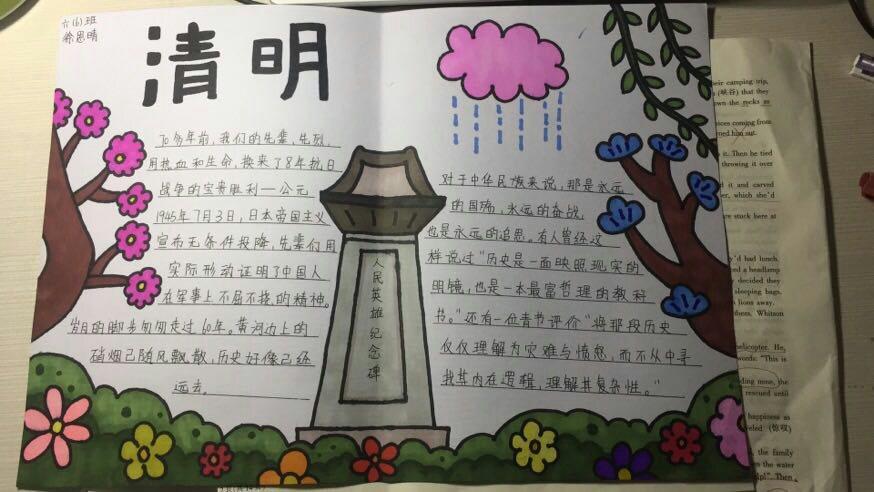 六(6)班
徐思晴
清明
70多年前,我们的先辈、先烈,
用热血和生命,换来了8年抗日
战争的宝贵胜利一公元
1945年7月3日,日本帝国主义
宣布无条件投降,先辈们用
实际形动证明了中国人
在军事上不屈不挠的精神。
岁月的脚步匆匆走过60年。黄河边上的
硝烟已随风飘散,历史好像已经
远去。
人民英雄纪念碑
对于中华民族来说,那是永远
的国殇,永远的奋战,
也是永远的追思。有人曾经这
样说过"历史是一面映照现实的
眼镜,也是一本最富哲理的教科
书。"还有一位青节评价"将那段历史
仅仅理解为灾难与愤怒,而不从中寻
找其内在逻辑,理解其复杂性。"
their camping trip,
(峡谷) that they
down the rocks as
voices coming from
rned him out.
it. Then he tied
throwing it over
d it and carved
er, which she'd
ere stuck here at
y'd had lunch.
ed a headlamp
y decided they
sleeping bags.
lions away.
them. Whitson
helicopter. He,
words: "This is
ding mine, the
rescued until
happiness as
veled (惊叹)
, the family
en the water
lp!". Then